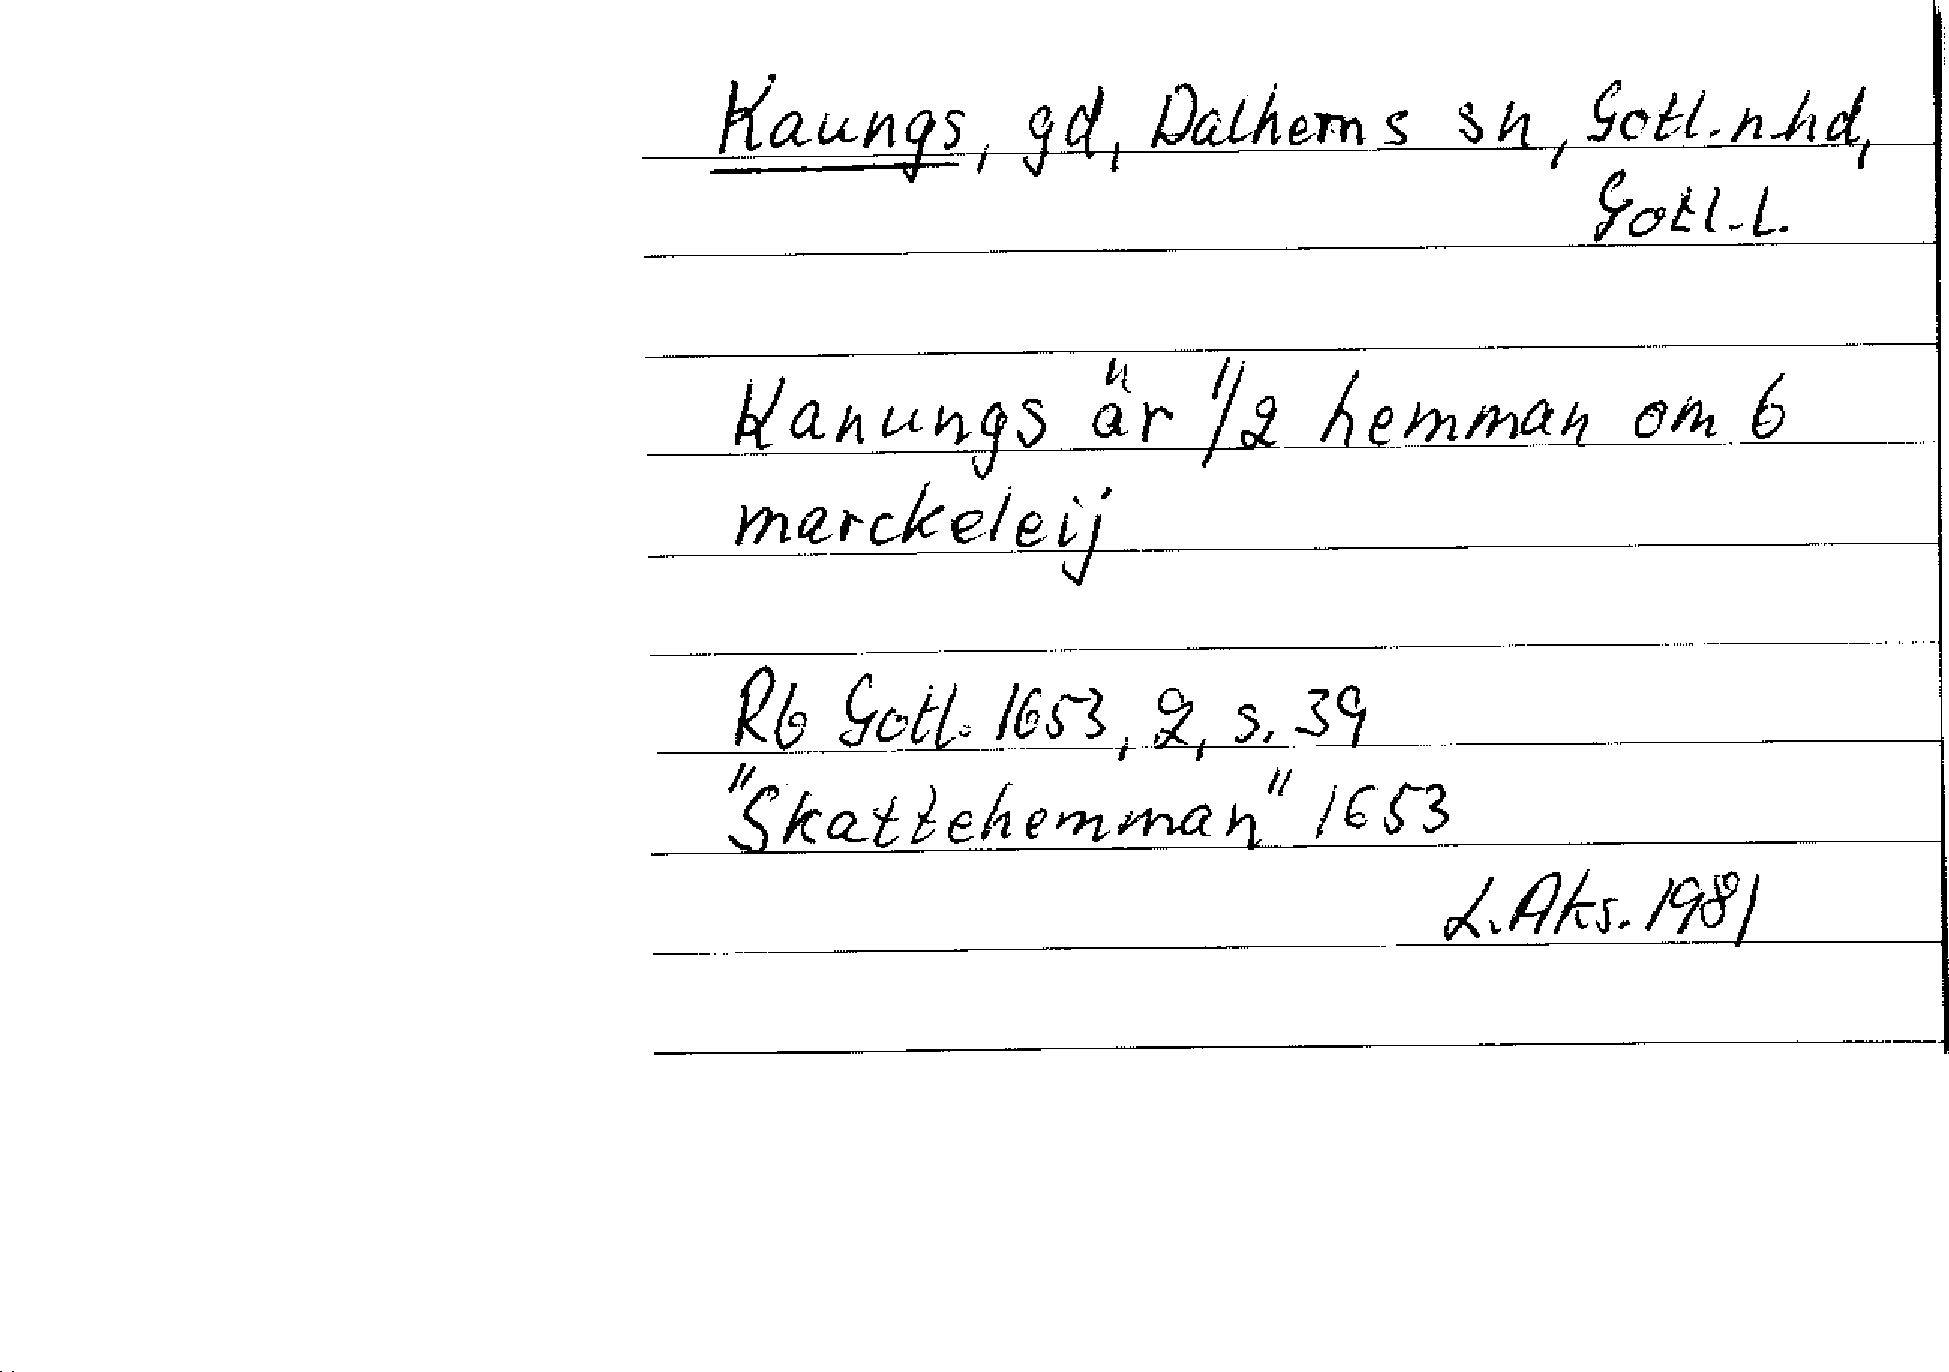 Kaungs, gd, Dalhems sn, Gotl. n. hd,
Gotl. l.
Kanungs är 1/2 hemman om 6
marckeleij
Rb Gotl. 1653, 2, s. 39
"Skattehemman" 1653
L. Aks. 1981